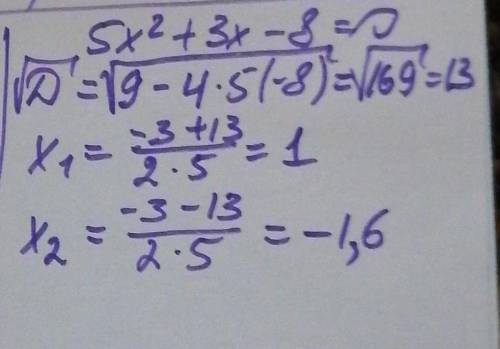 5x² + 3x - 8 = 0
√D = √9 - 4·5(-8) = √169 = 13
x₁ = (-3 + 13)/(2·5) = 1
x₂ = (-3 - 13)/(2·5) = -1,6